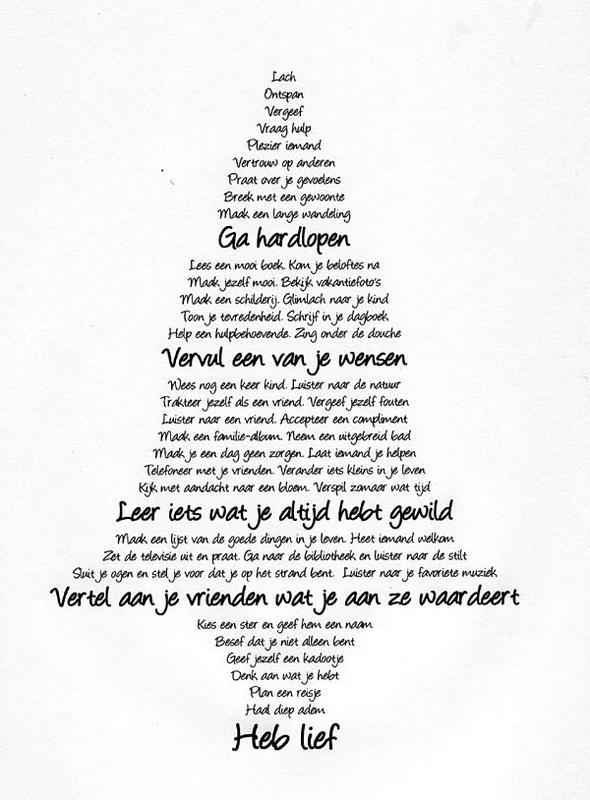 Lach
Ontspan
Vergeef
Vraag hulp
Plezier iemand
Vertrouw op anderen
Praat over je gevoelens
Breek met een gewoonte
Maak een lange wandeling
Ga hardlopen
Lees een mooi boek. Kom je beloftes na
Maak jezelf mooi. Bekijk vakantiefoto's
Maak een schilderij. Glimlach naar je kind
Toon je tevredenheid. Schrijf in je dagboek
Help een hulpbehoevende. Zing onder de douche
Vervul een van je wensen
Wees nog een keer kind. Luister naar de natuur
Trakteer jezelf als een vriend. Vergeef jezelf fouten
Luister naar een vriend. Accepteer een compliment
Maak een familie-album. Neem een uitgebreid bad
Maak je een dag geen zorgen. Laat iemand je helpen
Telefoneer met je vrienden. Verander iets kleins in je leven
Kijk met aandacht naar een bloem. Verspil zomaar wat tijd
Leer iets wat je altijd hebt gewild
Maak een lijst van de goede dingen in je leven. Heet iemand welkom
Zet de televisie uit en praat. Ga naar de bibliotheek en luister naar de stilt
Sluit je ogen en stel je voor dat je op het strand bent. Luister naar je favoriete muziek
Vertel aan je vrienden wat je aan ze waardeert
Kies een ster en geef hem een naam
Besef dat je niet alleen bent
Geef jezelf een kadootje
Denk aan wat je hebt
Plan een reisje
Haal diep adem
Heb lief